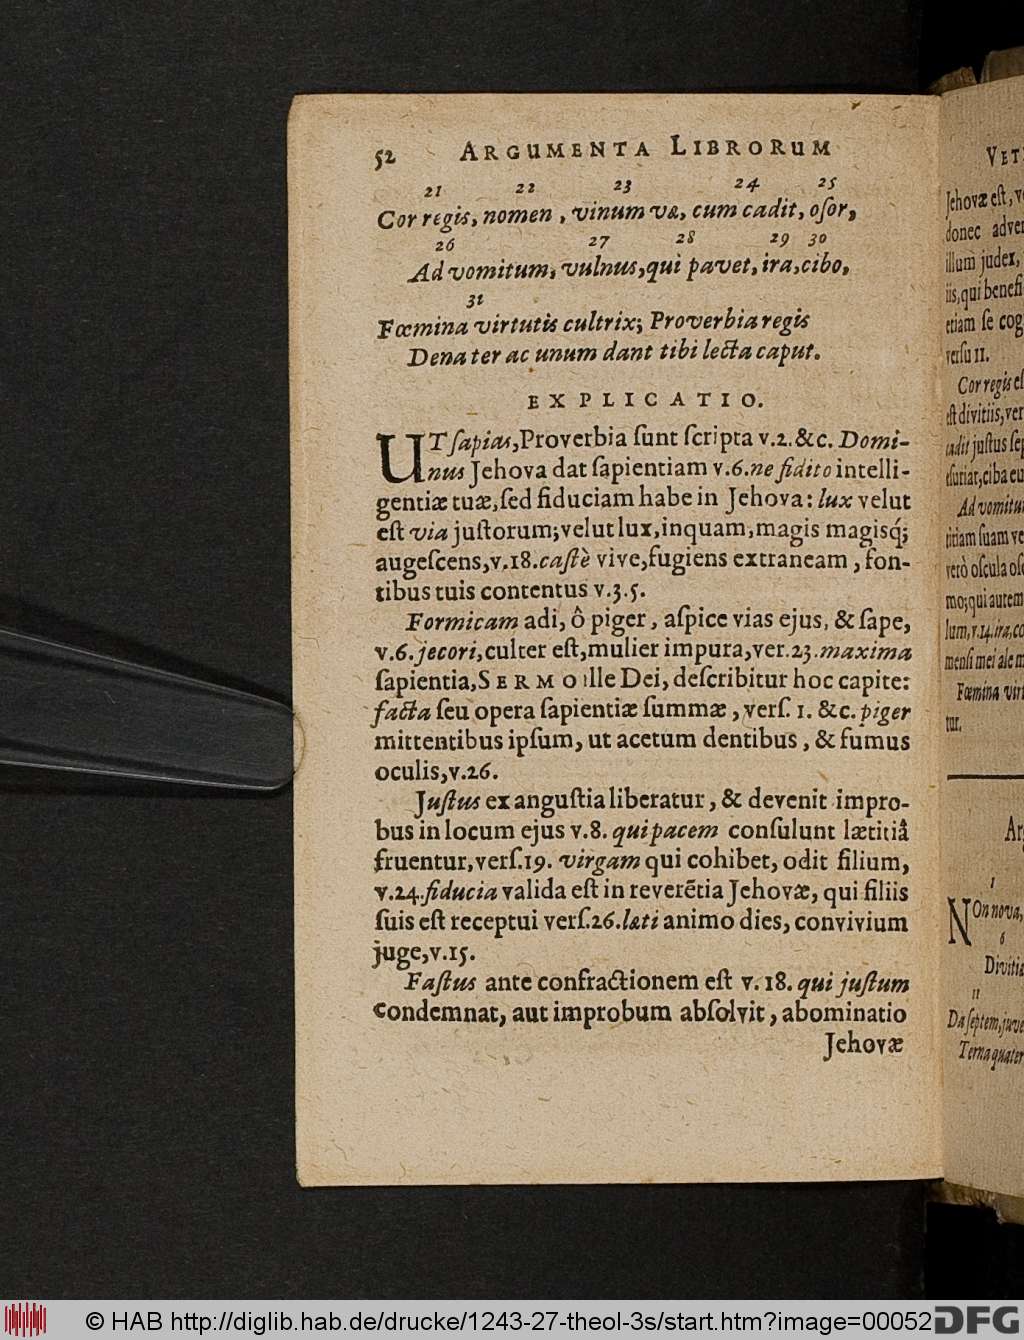 52 ARGUMENTA LIBRORUM
21 22 23 24 25
Cor regis, nomen, vinum væ, cum cadit, oſor,
26 27 28 29 30
Ad vomitum, vulnus, qui pavet, ira, cibo,
31
Fœmina virtutis cultrix; Proverbia regis
Dena ter ac unum dant tibi lecta caput.
EXPLICATIO.
UT ſapias, Proverbia ſunt ſcripta v.2.&c. Domi-
nus Jehova dat ſapientiam v.6. ne fidito intelli-
gentiæ tuæ, ſed fiduciam habe in Jehova: lux velut
eſt via juſtorum; velut lux, inquam, magis magisq́;
augeſcens, v.18. caſtè vive, fugiens extraneam, fon-
tibus tuis contentus v.3.5.
Formicam adi, ô piger, aſpice vias ejus, & ſape,
v.6. jecori, culter eſt, mulier impura, ver.23. maxima
ſapientia, SERMO ille Dei, deſcribitur hoc capite:
facta ſeu opera ſapientiæ ſummæ, verſ. 1. &c. piger
mittentibus ipſum, ut acetum dentibus, & fumus
oculis, v.26.
Juſtus ex anguſtia liberatur, & devenit impro-
bus in locum ejus v.8. qui pacem conſulunt lætitiâ
fruentur, verſ.19. virgam qui cohibet, odit filium,
v.24. fiducia valida eſt in reverētia Jehovæ, qui filiis
ſuis eſt receptui verſ.26. læti animo dies, convivium
juge, v.15.
Faſtus ante confractionem eſt v. 18. qui juſtum
condemnat, aut improbum abſolvit, abominatio
Jehovæ
VET
Jehovæ eſt, v
donec adver
illum judex,
iis, qui benefi
etiam ſe cog
verſu 11.
Cor regis eſ
eſt divitiis, ver
cadit juſtus ſep
eſuriat, ciba eu
Ad vomitu
titiam ſuam ve
verò oſcula oſo
mo; qui autem
lum, v.14. ira, co
menſi mei ale m
Fœmina virt
tur.
Ar
1
Non nova,
6
Divitiæ
11
Da ſeptem, juve
Terna quater
© HAB http://diglib.hab.de/drucke/1243-27-theol-3s/start.htm?image=00052 DFG